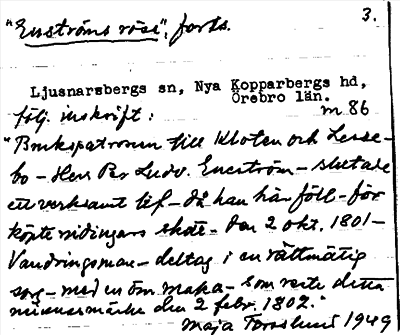 "Enströms röse", forts. 3.
Ljusnarsbergs sn, Nya Kopparbergs hd,
Örebro län.
följ. inskrift: m 86
"Brukspatronen till Kloten och Lesse-
bo - Herr Per Ludv. Eneström - slutade
ett verksamt lif - då han här föll - för
köpte nidingars skott - den 2 okt. 1801 -
Vandringsman - deltag i en rättmätig
sorg - med en öm maka - som reste detta
minnesmärke den 2 febr. 1802."
Maja Forsslund 1949